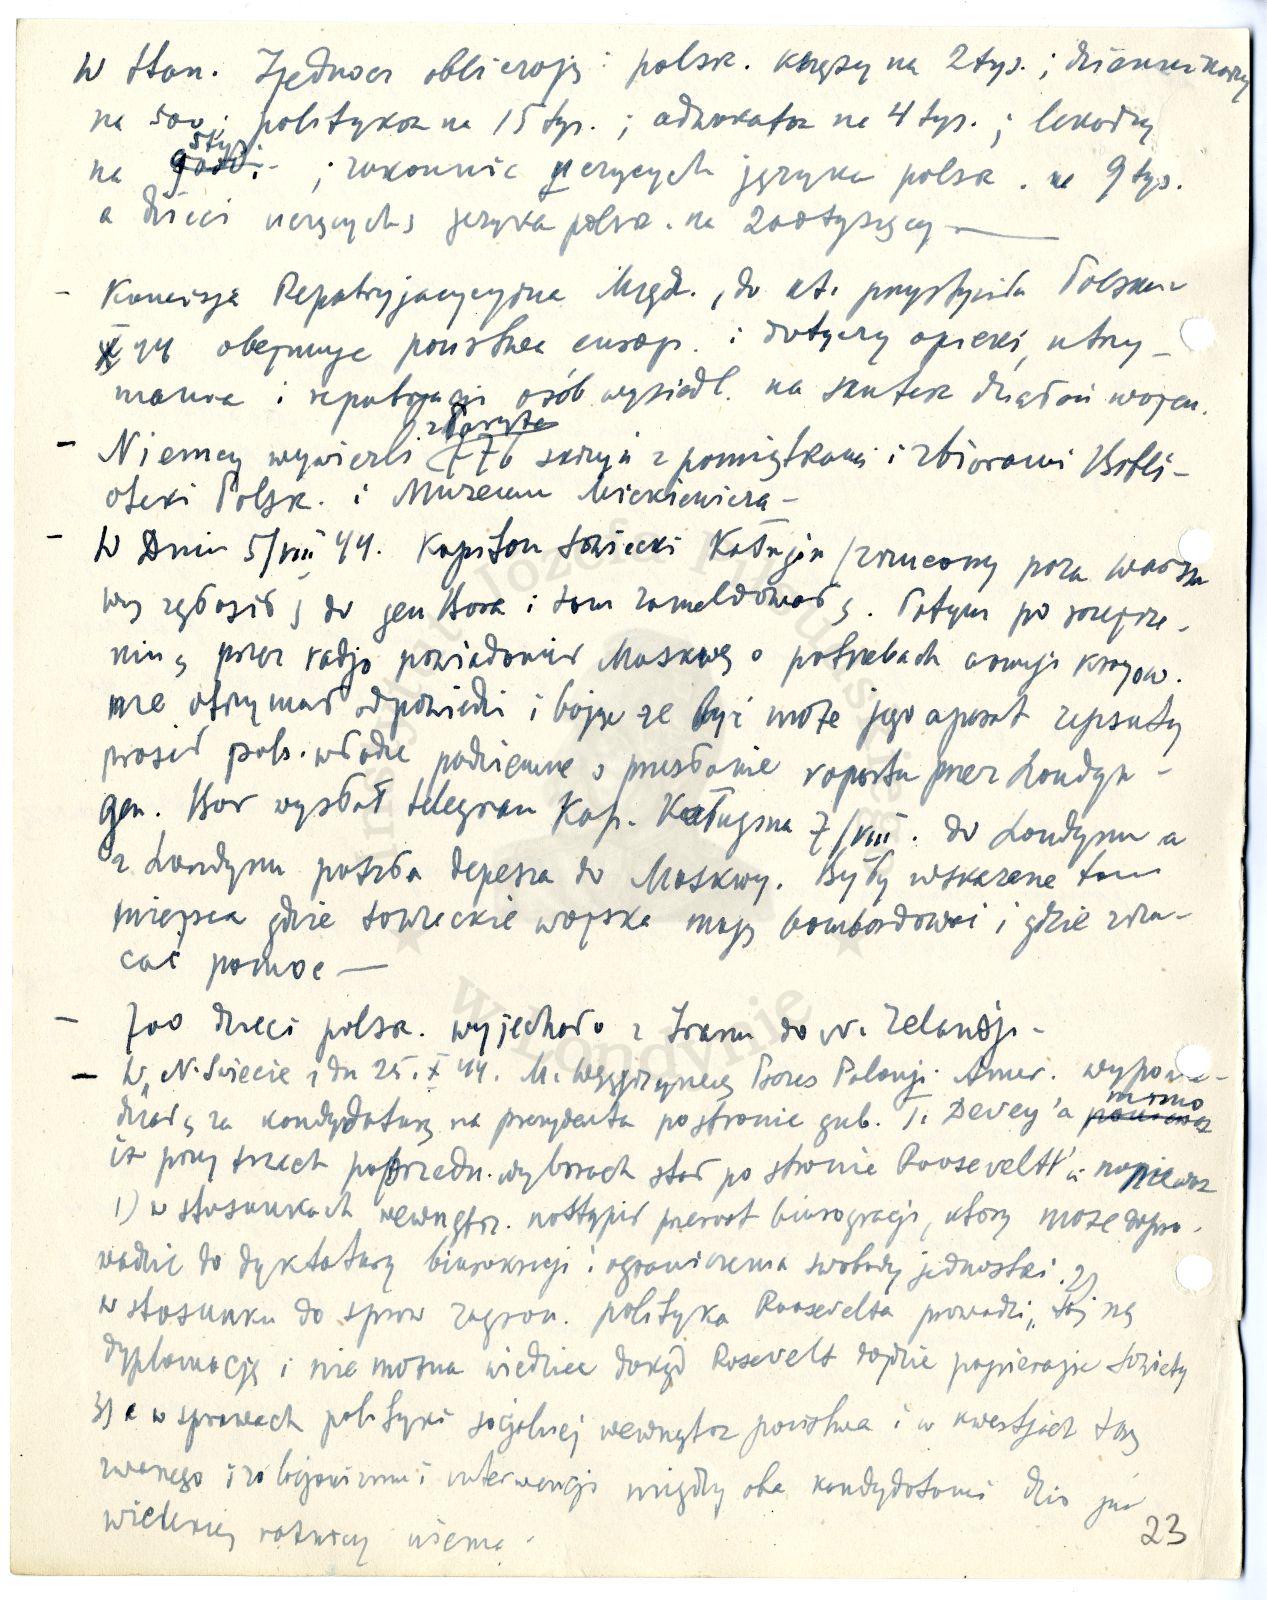 W Stan. Zjednocz obliczają : polsk. księży na 2 tys. ; dziennikarzy
na 500 ; polityków na 15 tys. ; adwokatów na 4 tys. ; lekarzy
na 5 tys. ; zakonnic uczących języka polsk. na 9 tys.
a dzieci uczących ś języka polsk. na 200 tysięcy —
– Komisja Repatryjacyjna Międz., do kt. przystąpiła Polska w
X 44 obejmuje państwa europ. i dotyczy opieki, utrzy-
mania i repatrjacji osób wysiedl. na skutek działań wojen.
– Niemcy wywieźli z Paryża 776 skrzyń z pamiątkami i zbiorami Bibli-
oteki Polsk. i Muzeum Mickiewicza –
– W Dniu 5/VIII 44. Kapitan sowiecki Kaługin /zrzucony poza Warsza
wą zgłosił ś do gen Bora i tam zameldował ś. Potym po
przez radjo powiadomił Moskwę o potrzebach armji krajow.
nie otrzymał odpowiedzi i bojąc że być może jego aparat zepsuty
prosił pols. władze podziemne o przesłanie raportu przez Londyn –
gen. Bor wysłał telegram Kap. Kaługina 7/VIII. do Londynu a
z Londynu poszła depesza do Moskwy. Były wskazane tam
miejsca gdzie sowieckie wojska mają bombardować i gdzie zrzu-
cać pomoc —
– 700 dzieci polsk. wyjechało z Iranu do N. Zelandji –
– W „N. Świecie z dn 25. X 44. M. Węgrzynek, Prezes Polonji Amer. wypowie-
dział ś za kandydaturą na prezydenta po stronie gub. T. Devey'a mimo
iż przy trzech poprzedn. wyborach stał po stronie Roosevelt'a
1) w stosunkach wewnętrz. nastąpił przerost biurogracji, który może dopro-
wadzić do dyktatury biurokracji i ograniczenia swobody jednostki. 2)
w stosunku do spraw zagran. polityka Roosevelta prowadzi „tajną
dyplomację i nie można wiedzieć dokąd Rosevelt dojdzie popierając Sowiety
3) a w sprawach polityki socjalnej wewnątrz państwa i w kwestjach tak
zwanego izolacjonizmu i interwencji między oba kandydatami dziś już
wielkiej różnicy niema.
23
Instytut Józefa Piłsudskiego
w Londynie